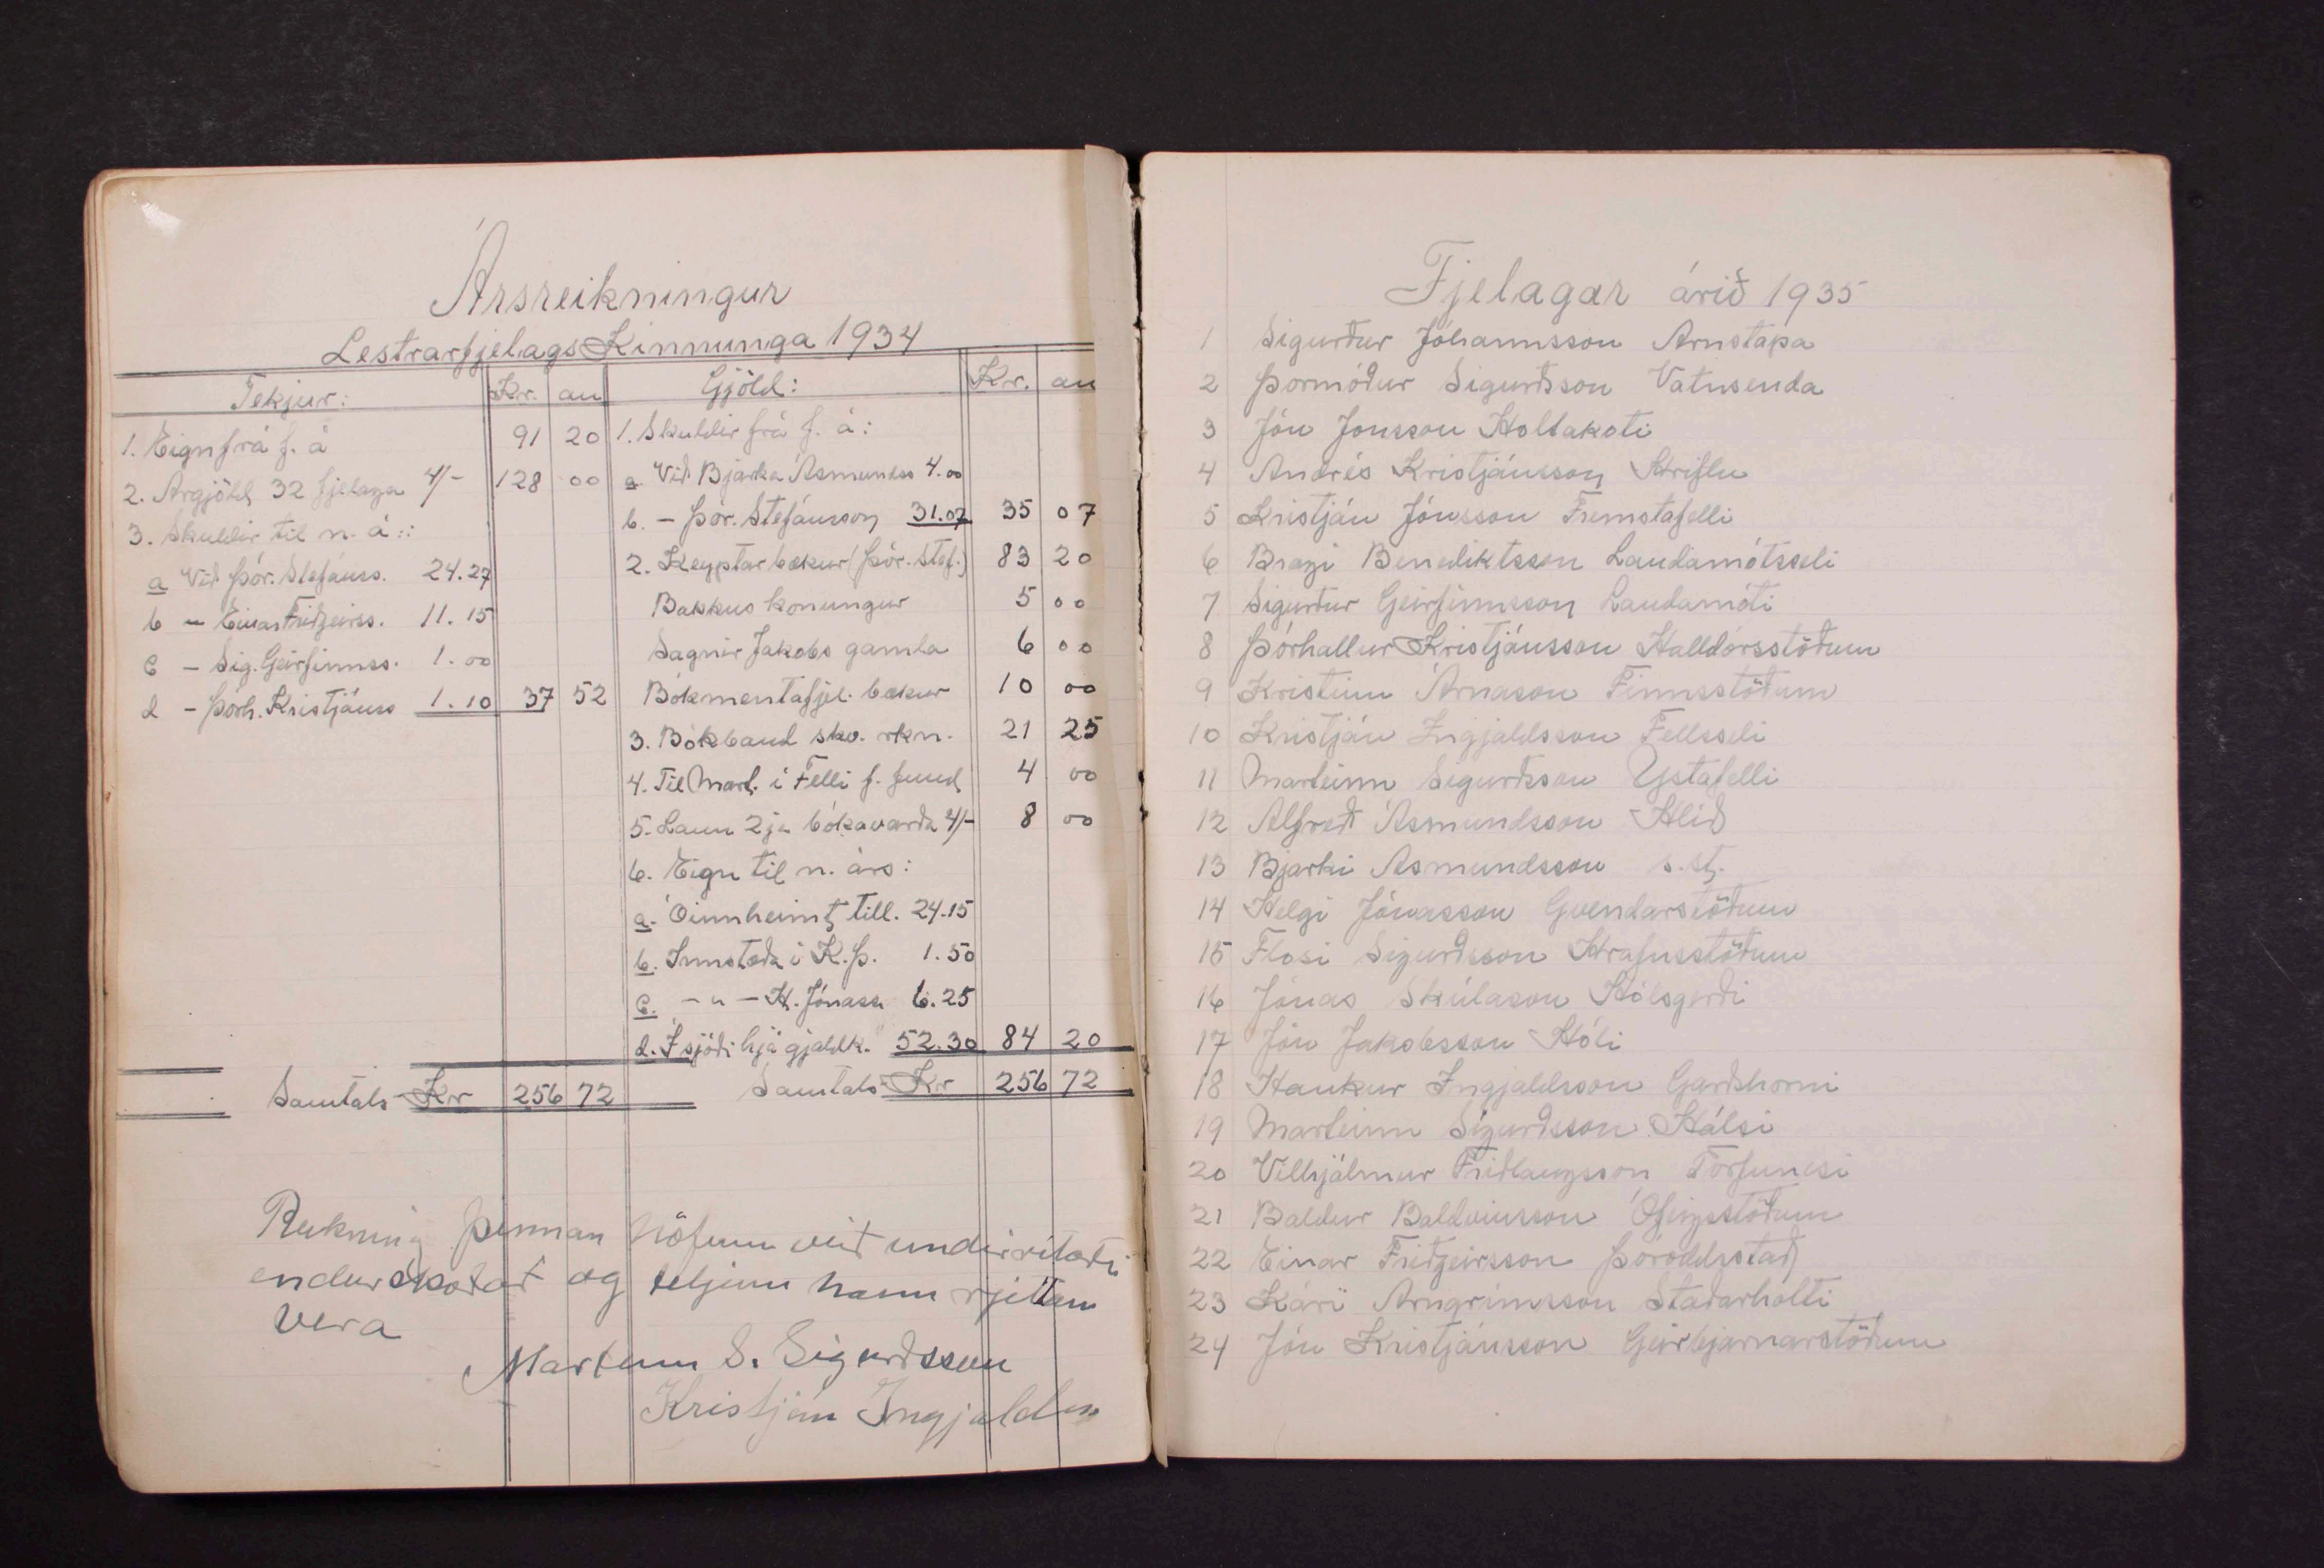 Ársreikningur
Lestrarfjelags Kinnunga 1934
Tekjur: Kr. au Gjöld: Kr. au
1. Eign frá f. á 91 20 1. Skuldir frá f. á:
2. Árgjöld 32 fjelaga 4/- 128 00 a Við Bjarka Ásmundss 4.00
3. Skuldir til n. á:: b. - Þór. Stefánsson 31.07 35 07
a Við Þór. Stefánss. 24.27 2. Keyptar bækur (Þór. Stef.) 83 20
b - Einar Friðgeirss. 11.15 Bakkus konungur 5 00
c - Sig. Geirfinnss. 1.00 Sagnir Jakobs gamla 6 00
d - Þórh. Kristjánss 1.10 37 52 Bókmentafjel. bækur 10 00
3. Bókband skv. rkn. 21 25
4. Til Mart. í Felli f. fund 4 00
5. Laun 2ja bókavarða 4/- 8 00
6. Eign til n. árs:
a. Óinnheimt till. 24.15
b. Innstæða í K.Þ. 1.50
c. - " - H. Jónass 6.25
d. Í sjóði hjá gjaldk. 52.30 84 20
Samtals Kr 256 72 Samtals Kr 256 72
Reikning þennan höfum við undirritaðir
endurskoðað og teljum hann rjettan
vera
Marteinn S. Sigurðsson
Kristján Ingjaldss
Fjelagar árið 1935
1 Sigurður Jóhannsson Arnstapa
2 Þormóður Sigurðsson Vatnsenda
3 Jón Jónsson Holtakoti
4 Andrés Kristjánsson Hriflu
5 Kristján Jónsson Fremstafelli
6 Bragi Benediktsson Landamótsseli
7 Sigurður Geirfinnsson Landamóti
8 Þórhallur Kristjánsson Halldórsstöðum
9 Kristinn Árnason Finnsstöðum
10 Kristján Ingjaldsson Fellsseli
11 Marteinn Sigurðsson Ystafelli
12 Alfreð Ásmundsson Hlíð
13 Bjarki Ásmundsson s.st.
14 Helgi Jónasson Gvendarstöðum
15 Flosi Sigurðsson Hrafnsstöðum
16 Jónas Skúlason Hólsgerði
17 Jón Jakobsson Hóli
18 Haukur Ingjaldsson Garðshorni
19 Marteinn Sigurðsson Hálsi
20 Vilhjálmur Friðlaugsson Torfunesi
21 Baldur Baldvinsson Ófeigsstöðum
22 Einar Friðgeirsson Þóroddsstað
23 Kári Arngrímsson Staðarholti
24 Jón Kristjánsson Geirbjarnarstöðum